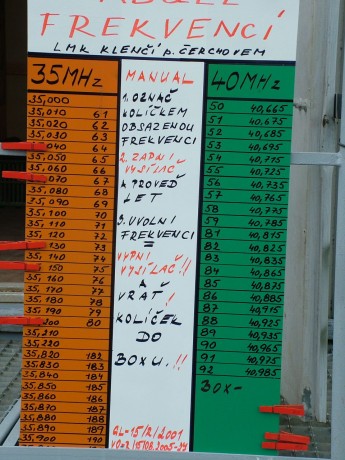 FREKVENCÍ
LMK KLENČÍ p. ČERCHOVEM
35MHz
35,000
35,010 61
35,020 62
35,030 63
35,040 64
35,050 65
35,060 66
070 67
35,080 68
35,090 69
35,100 70
35,110 71
35,120 72
130 73
35,140 74
150 75
35,160 76
35,170 77
35,180 78
35,190 79
200 80
35,210
35,220
35,820 182
35,830 183
35,840 184
35,850 185
35,860 186
35,870 187
35,880 188
35,890 189
35,900 190
MANUAL
1. OZNAČ
KOLÍČKEM
OBSAZENOU
FREKVENCI
2. ZAPNI
VYSÍLAČ
A PROVEĎ
LET
3. UVOLNI
FREKVENCI
=
VYPNI
VYSÍLAČ!!
A
VRAŤ!
KOLÍČEK
DO
BOXU.!!
40MHz
50 40,665
51 40,675
52 40,685
53 40,695
54 40,715
55 40,725
56 40,735
57 40,765
58 40,775
59 40,785
81 40,815
82 40,825
83 40,835
84 40,865
85 40,875
86 40,885
87 40,915
88 40,925
89 40,935
90 40,965
91 40,975
92 40,985
BOX-